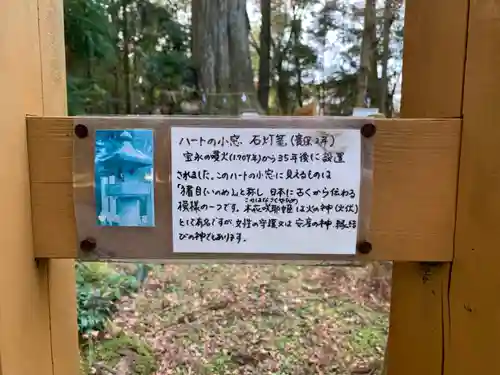 ハートの小窓、石灯篭、(寛保2年)
宝永の噴火(1707年)から35年後に設置
されました。このハートの小窓に見えるものは
「猪目(いのめ)」と称し日本に古くから伝わる
模様の一つです。木花咲耶姫は火の神(火伏)
このはなさくやひめ
として有名ですが、女性の神又は安産の神、縁結び
の神でもあります。